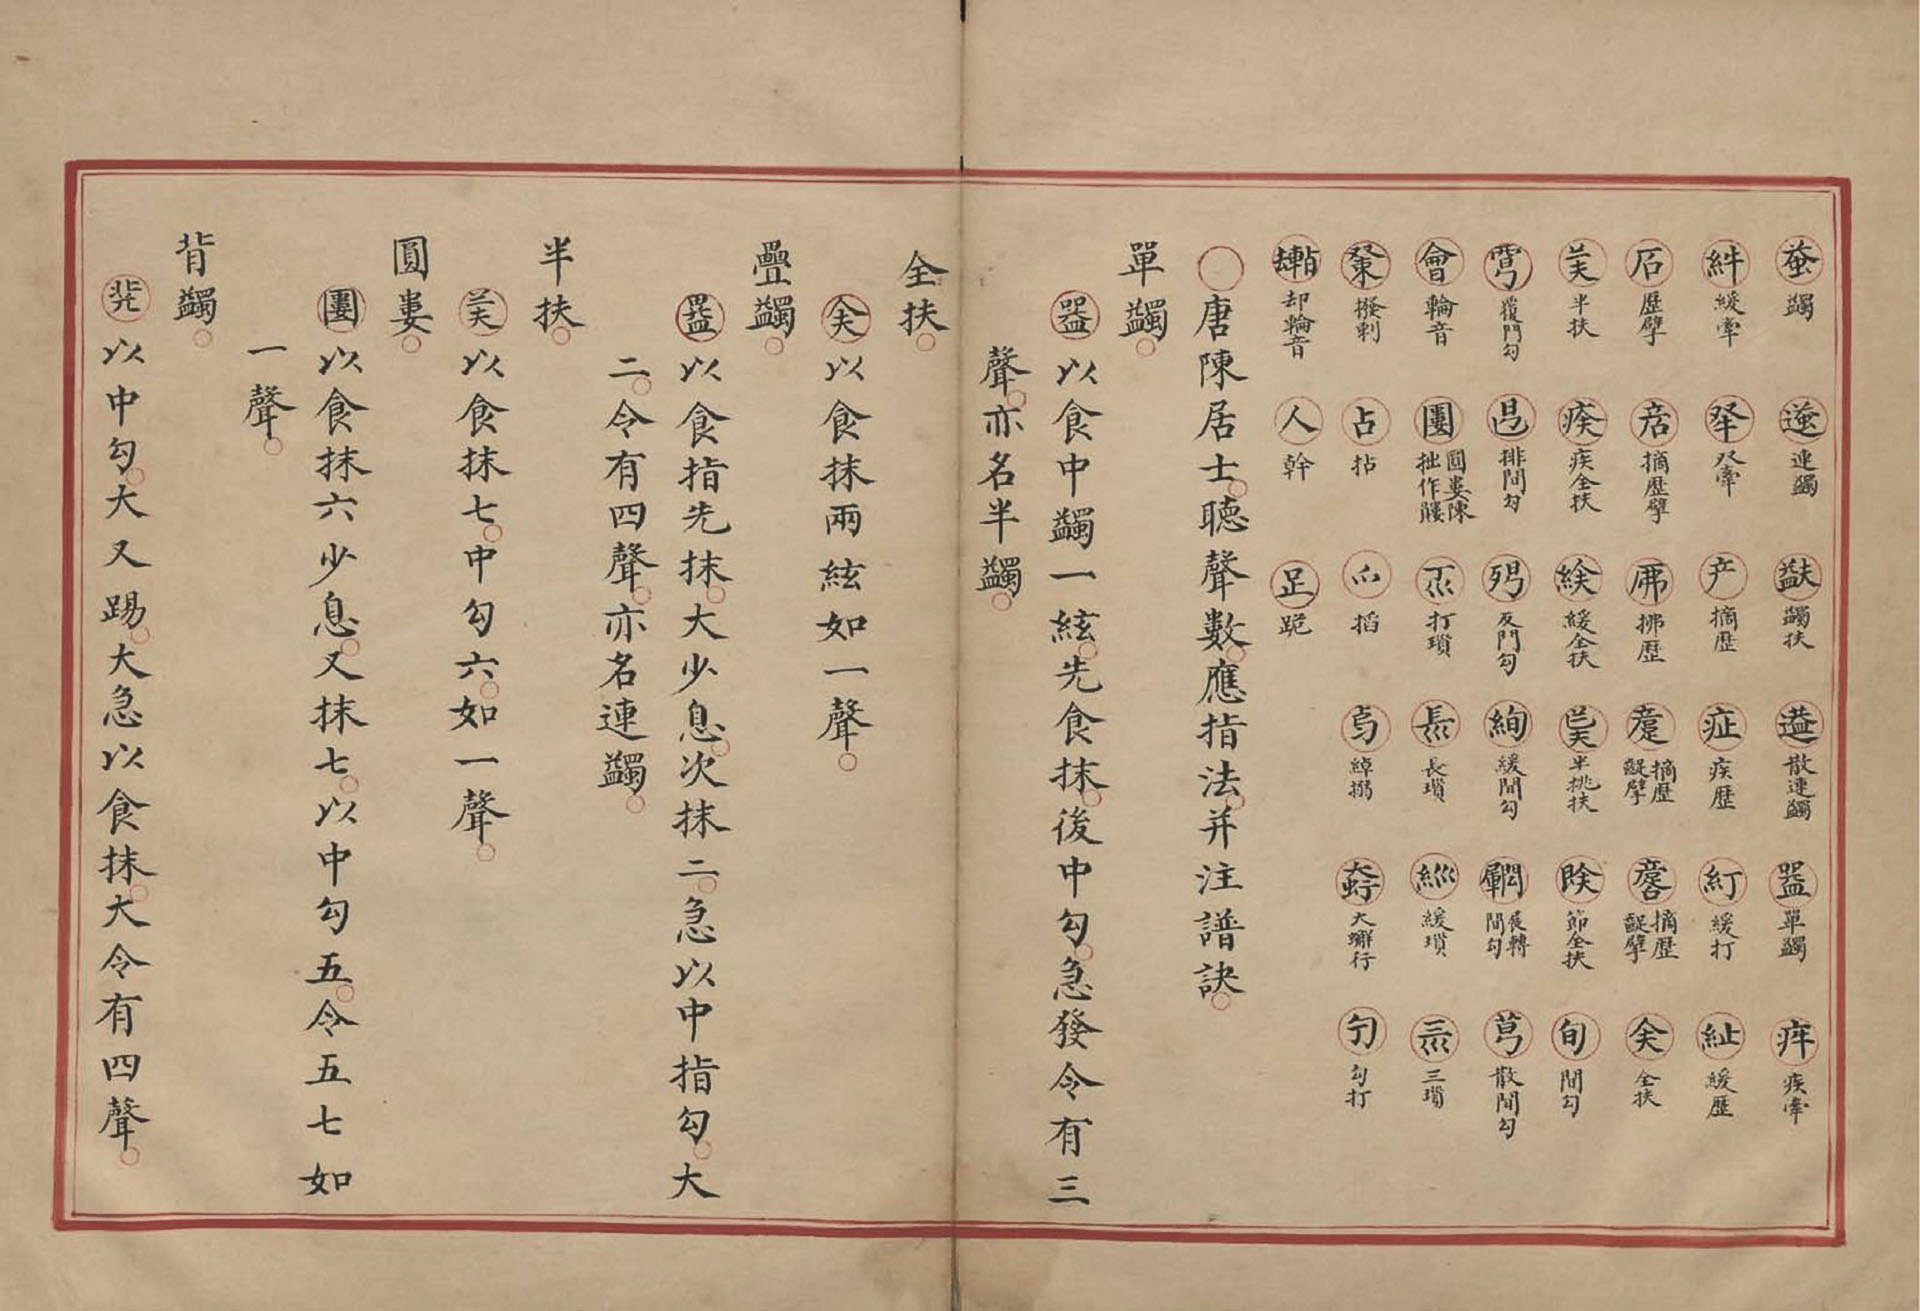 蠲 連蠲 蠲扶 散連蠲 單蠲 疾牽
緩牽 双牽 摘歷 疾歷 緩打 緩歷
歷擘 摘歷擘 拂歷 摘歷齪擘 摘歷齪擘 全扶
半扶 疾全扶 緩全扶 半挑扶 節全扶 間勾
覆門勾 排間勾 反門勾 緩間勾 展轉間勾 散間勾
輪音 圓婁陳拙作䁖 打瑣 長瑣 緩瑣 三瑣
撥剌 占拈 掐 綽搦 大蠏行 勾打
却輪音 人幹 足跪
唐陳居士聽聲數應指法并注譜訣
單蠲
以食中蠲一絃先食抹後中勾急發令有三
聲亦名半蠲
全扶
以食抹兩絃如一聲
疊蠲
以食指先抹大少息次抹二急以中指勾大
二令有四聲亦名連蠲
半扶
以食抹七中勾六如一聲
圓婁
以食抹六少息又抹七以中勾五令五七如
一聲
背蠲
以中勾大又踢大急以食抹大令有四聲